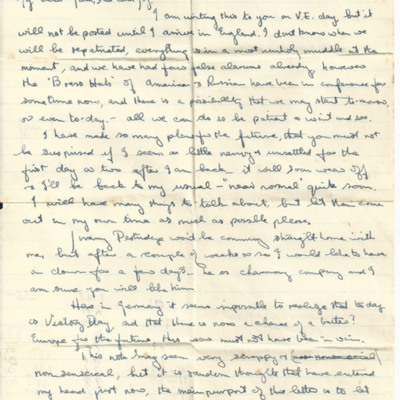 I am writing this to you on V.E. day but it
will not be posted until I arrive in England. I dont know when we
will be repatriated, everything is in a most unholy muddle at the
moment, and we have had few false alarms already however
the "Brass Hats" of America & Russian have been in conference for
sometime now, and there is a possibility that we may start to-morrow,
or even to-day - all we can do is be patient & wait and see.
I have made so many plans for the future, that you must not
be surprised if I seem a little nervy & unsettled for the
first day or two after I am back - it will soon wear off
& I'll be back to my usual - "near normal" quite soon.
I will have many things to talk about, but let them come
out in my own time as much as possible please.
won't be coming straight home with
me, but after a couple of weeks or so I would like to have
down for a few days - he is charming company and I
am sure you will like him.
Here in Germany it seems impossible to realize that to-day
is Victory Day and that there is now a chance of a better
Europe for the future, this war must not have been in vain.
This note may seem very scrappy &
nonsensical, but it is random thoughts that have entered
my head just now, the main purport of this letter is to let